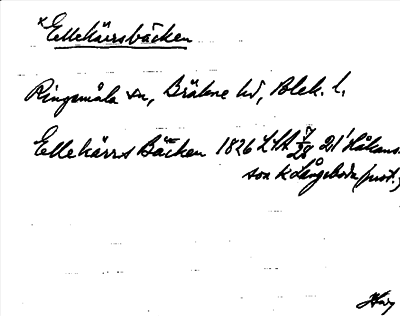 *Ellekärrsbäcken
Ringamåla sn, Bräkne hd, Blek. l.
Ellekärrs Bäcken 1826 LSA 21' Håkans-
son k Långeboda